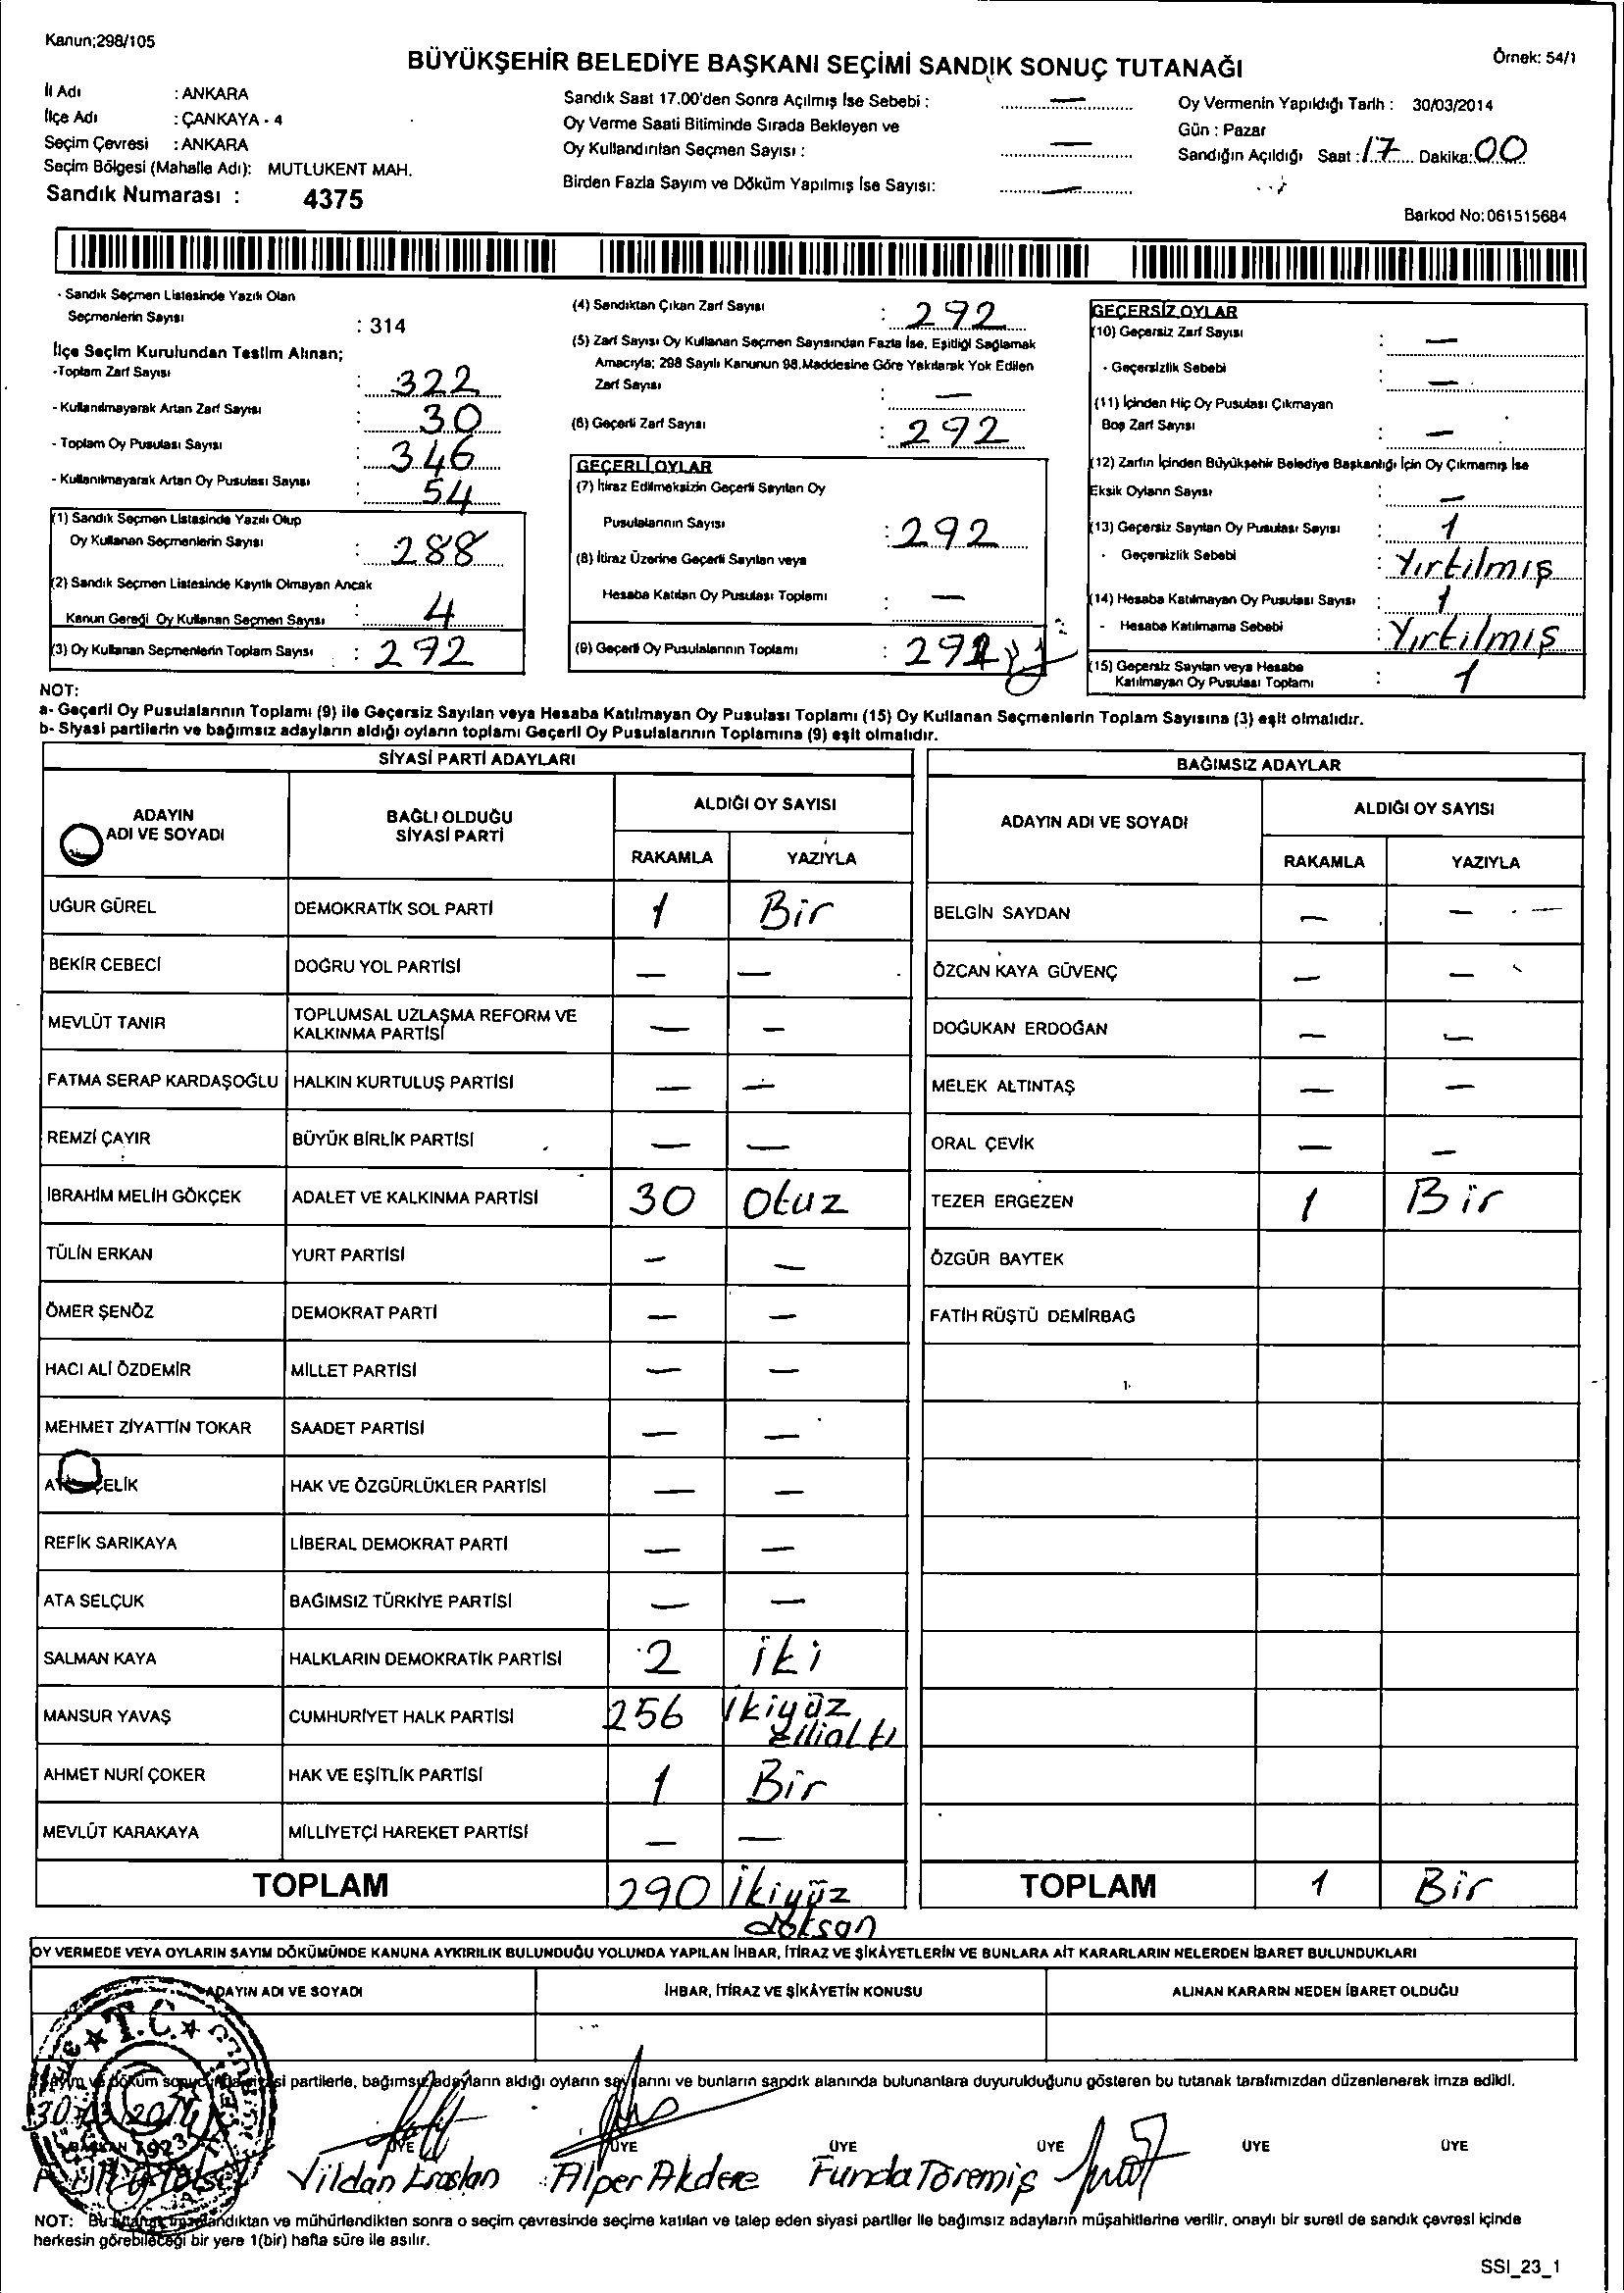 Kanun;298/105
BÜYÜKŞEHİR BELEDİYE BAŞKANI SEÇİMİ SANDIK SONUÇ TUTANAĞI
Örnek: 54/1
İl Adı : ANKARA
İlçe Adı : ÇANKAYA - 4
Seçim Çevresi : ANKARA
Seçim Bölgesi (Mahalle Adı): MUTLUKENT MAH.
Sandık Numarası : 4375
Sandık Saat 17.00'den Sonra Açılmış İse Sebebi : —
Oy Verme Saati Bitiminde Sırada Bekleyen ve
Oy Kullandırılan Seçmen Sayısı : —
Birden Fazla Sayım ve Döküm Yapılmış İse Sayısı: —
Oy Vermenin Yapıldığı Tarih : 30/03/2014
Gün : Pazar
Sandığın Açıldığı Saat : 17 Dakika: 00
Barkod No: 061515684
- Sandık Seçmen Listesinde Yazılı Olan
Seçmenlerin Sayısı : 314
İlçe Seçim Kurulundan Teslim Alınan;
-Toplam Zarf Sayısı : 322
- Kullanılmayarak Artan Zarf Sayısı : 30
- Toplam Oy Pusulası Sayısı : 346
- Kullanılmayarak Artan Oy Pusulası Sayısı : 54
(1) Sandık Seçmen Listesinde Yazılı Olup
Oy Kullanan Seçmenlerin Sayısı : 288
(2) Sandık Seçmen Listesinde Kayıtlı Olmayan Ancak
Kanun Gereği Oy Kullanan Seçmen Sayısı : 4
(3) Oy Kullanan Seçmenlerin Toplam Sayısı : 292
(4) Sandıktan Çıkan Zarf Sayısı : 292
(5) Zarf Sayısı Oy Kullanan Seçmen Sayısından Fazla İse, Eşitliği Sağlamak
Amacıyla; 298 Sayılı Kanunun 98.Maddesine Göre Yakılarak Yok Edilen
Zarf Sayısı : —
(6) Geçerli Zarf Sayısı : 292
GEÇERLİ OYLAR
(7) İtiraz Edilmeksizin Geçerli Sayılan Oy
Pusulalarının Sayısı : 292
(8) İtiraz Üzerine Geçerli Sayılan veya
Hesaba Katılan Oy Pusulası Toplamı : —
(9) Geçerli Oy Pusulalarının Toplamı : 291
GEÇERSİZ OYLAR
(10) Geçersiz Zarf Sayısı : —
- Geçersizlik Sebebi : —
(11) İçinden Hiç Oy Pusulası Çıkmayan
Boş Zarf Sayısı : —
(12) Zarfın İçinden Büyükşehir Belediye Başkanlığı İçin Oy Çıkmamış İse
Eksik Oyların Sayısı : —
(13) Geçersiz Sayılan Oy Pusulası Sayısı : 1
- Geçersizlik Sebebi : Yırtılmış
(14) Hesaba Katılmayan Oy Pusulası Sayısı : 1
- Hesaba Katılmama Sebebi : Yırtılmış
(15) Geçersiz Sayılan veya Hesaba
Katılmayan Oy Pusulası Toplamı : 1
NOT:
a- Geçerli Oy Pusulalarının Toplamı (9) ile Geçersiz Sayılan veya Hesaba Katılmayan Oy Pusulası Toplamı (15) Oy Kullanan Seçmenlerin Toplam Sayısına (3) eşit olmalıdır.
b- Siyasi partilerin ve bağımsız adayların aldığı oyların toplamı Geçerli Oy Pusulalarının Toplamına (9) eşit olmalıdır.
SİYASİ PARTİ ADAYLARI
ADAYIN ADI VE SOYADI
BAĞLI OLDUĞU SİYASİ PARTİ
ALDIĞI OY SAYISI
RAKAMLA YAZIYLA
UĞUR GÜREL DEMOKRATİK SOL PARTİ 1 Bir
BEKİR CEBECİ DOĞRU YOL PARTİSİ — —
MEVLÜT TANIR TOPLUMSAL UZLAŞMA REFORM VE KALKINMA PARTİSİ — —
FATMA SERAP KARDAŞOĞLU HALKIN KURTULUŞ PARTİSİ — —
REMZİ ÇAYIR BÜYÜK BİRLİK PARTİSİ — —
İBRAHİM MELİH GÖKÇEK ADALET VE KALKINMA PARTİSİ 30 Otuz
TÜLİN ERKAN YURT PARTİSİ — —
ÖMER ŞENÖZ DEMOKRAT PARTİ — —
HACI ALİ ÖZDEMİR MİLLET PARTİSİ — —
MEHMET ZİYATTİN TOKAR SAADET PARTİSİ — —
ÇELİK HAK VE ÖZGÜRLÜKLER PARTİSİ — —
REFİK SARIKAYA LİBERAL DEMOKRAT PARTİ — —
ATA SELÇUK BAĞIMSIZ TÜRKİYE PARTİSİ — —
SALMAN KAYA HALKLARIN DEMOKRATİK PARTİSİ 2 iki
MANSUR YAVAŞ CUMHURİYET HALK PARTİSİ 256 İkiyüz ellialtı
AHMET NURİ ÇOKER HAK VE EŞİTLİK PARTİSİ 1 Bir
MEVLÜT KARAKAYA MİLLİYETÇİ HAREKET PARTİSİ — —
TOPLAM 290 İkiyüz doksan
BAĞIMSIZ ADAYLAR
ADAYIN ADI VE SOYADI
ALDIĞI OY SAYISI
RAKAMLA YAZIYLA
BELGİN SAYDAN — —
ÖZCAN KAYA GÜVENÇ — —
DOĞUKAN ERDOĞAN — —
MELEK ALTINTAŞ — —
ORAL ÇEVİK — —
TEZER ERGEZEN 1 Bir
ÖZGÜR BAYTEK
FATİH RÜŞTÜ DEMİRBAĞ
TOPLAM 1 Bir
OY VERMEDE VEYA OYLARIN SAYIM DÖKÜMÜNDE KANUNA AYKIRILIK BULUNDUĞU YOLUNDA YAPILAN İHBAR, İTİRAZ VE ŞİKÂYETLERİN VE BUNLARA AİT KARARLARIN NELERDEN İBARET BULUNDUKLARI
ADAYIN ADI VE SOYADI İHBAR, İTİRAZ VE ŞİKÂYETİN KONUSU ALINAN KARARIN NEDEN İBARET OLDUĞU
T.C.
Sayım ve döküm sonucunda siyasi partilerle, bağımsız adayların aldığı oyların sayılarını ve bunların sandık alanında bulunanlara duyurulduğunu gösteren bu tutanak tarafımızdan düzenlenerek imza edildi.
30/03/2014
BAŞKAN ÜYE ÜYE ÜYE ÜYE ÜYE ÜYE
1923
Vildan Eraslan Alper Akdere Funda Töremiş
NOT: Bu tutanak imzalandıktan ve mühürlendikten sonra o seçim çevresinde seçime katılan ve talep eden siyasi partiler ile bağımsız adayların müşahitlerine verilir, onaylı bir sureti de sandık çevresi içinde
herkesin görebileceği bir yere 1(bir) hafta süre ile asılır.
SSI_23_1